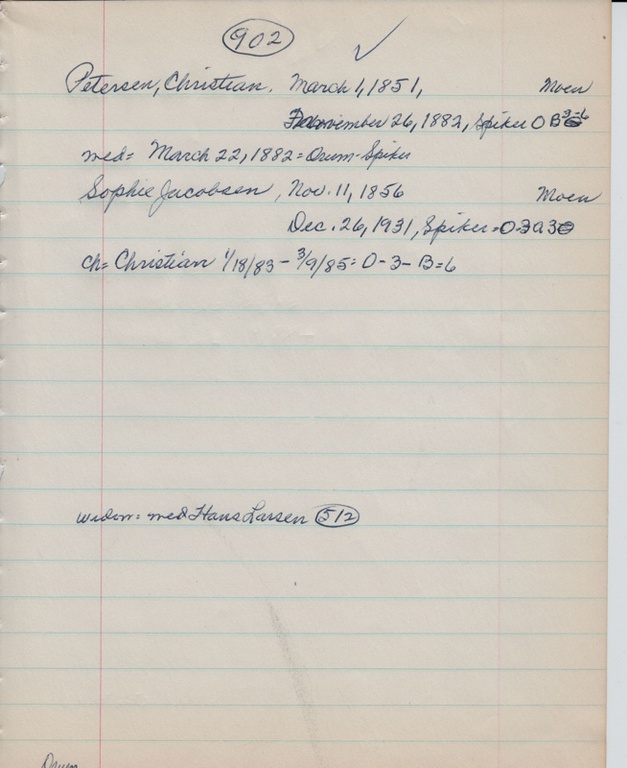 902 ✓
Petersen, Christian. March 1, 1851, Moen
November 26, 1882, Spiker O B 3=6
med= March 22, 1882= Orum-Spiker
Sophie Jacobsen, Nov. 11, 1856 Moen
Dec. 26, 1931, Spiker=O-3A3
Ch= Christian 1/18/83 - 3/9/85= O-3-B=6
widow: med Hans Larsen 512
Orum